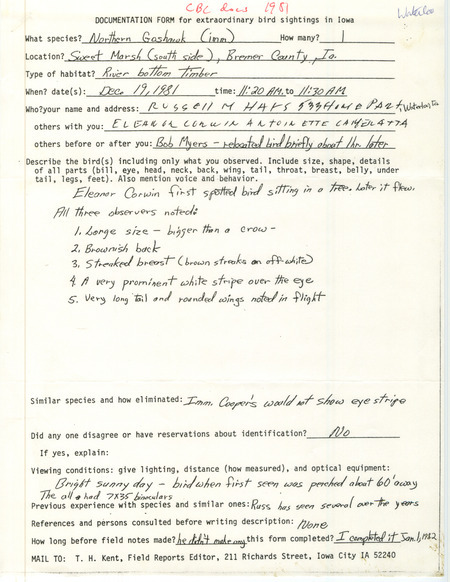 CBC docs 1981
Waterloo
DOCUMENTATION FORM for extraordinary bird sightings in Iowa
What species? Northern Goshawk (imm) How many? 1
Location? Sweet Marsh (south side), Bremer County, Ia.
Type of habitat? River bottom timber
When? date(s): Dec. 19, 1981 time: 11:20 AM to 11:30 AM
Who?your name and address: RUSSELL M HAYS
others with you: ELEANOR CORWIN ANTOINETTE CAMERATTA
others before or after you: Bob Myers - relocated bird briefly about 1hr later
Describe the bird(s) including only what you observed. Include size, shape, details
of all parts (bill, eye, head, neck, back, wing, tail, throat, breast, belly, under
tail, legs, feet). Also mention voice and behavior.
Eleanor Corwin first spotted bird sitting in a tree. Later it flew.
All three observers noted:
1. Large size - bigger than a crow -
2. Brownish back
3. Streaked breast (brown streaks on off-white)
4. A very prominent white stripe over the eye
5. Very long tail and rounded wings noted in flight
Similar species and how eliminated: Imm. Cooper's would not show eye stripe
Did any one disagree or have reservations about identification? No
If yes, explain:
Viewing conditions: give lighting, distance (how measured), and optical equipment:
Bright sunny day - bird when first seen was perched about 60' away
The all had 7X35 binoculars
Previous experience with species and similar ones: Russ has seen several over the years
References and persons consulted before writing description: None
How long before field notes made? he didn't make any this form completed? I completed it Jan. 1, 1982
MAIL TO: T. H. Kent, Field Reports Editor, 211 Richards Street, Iowa City IA 52240